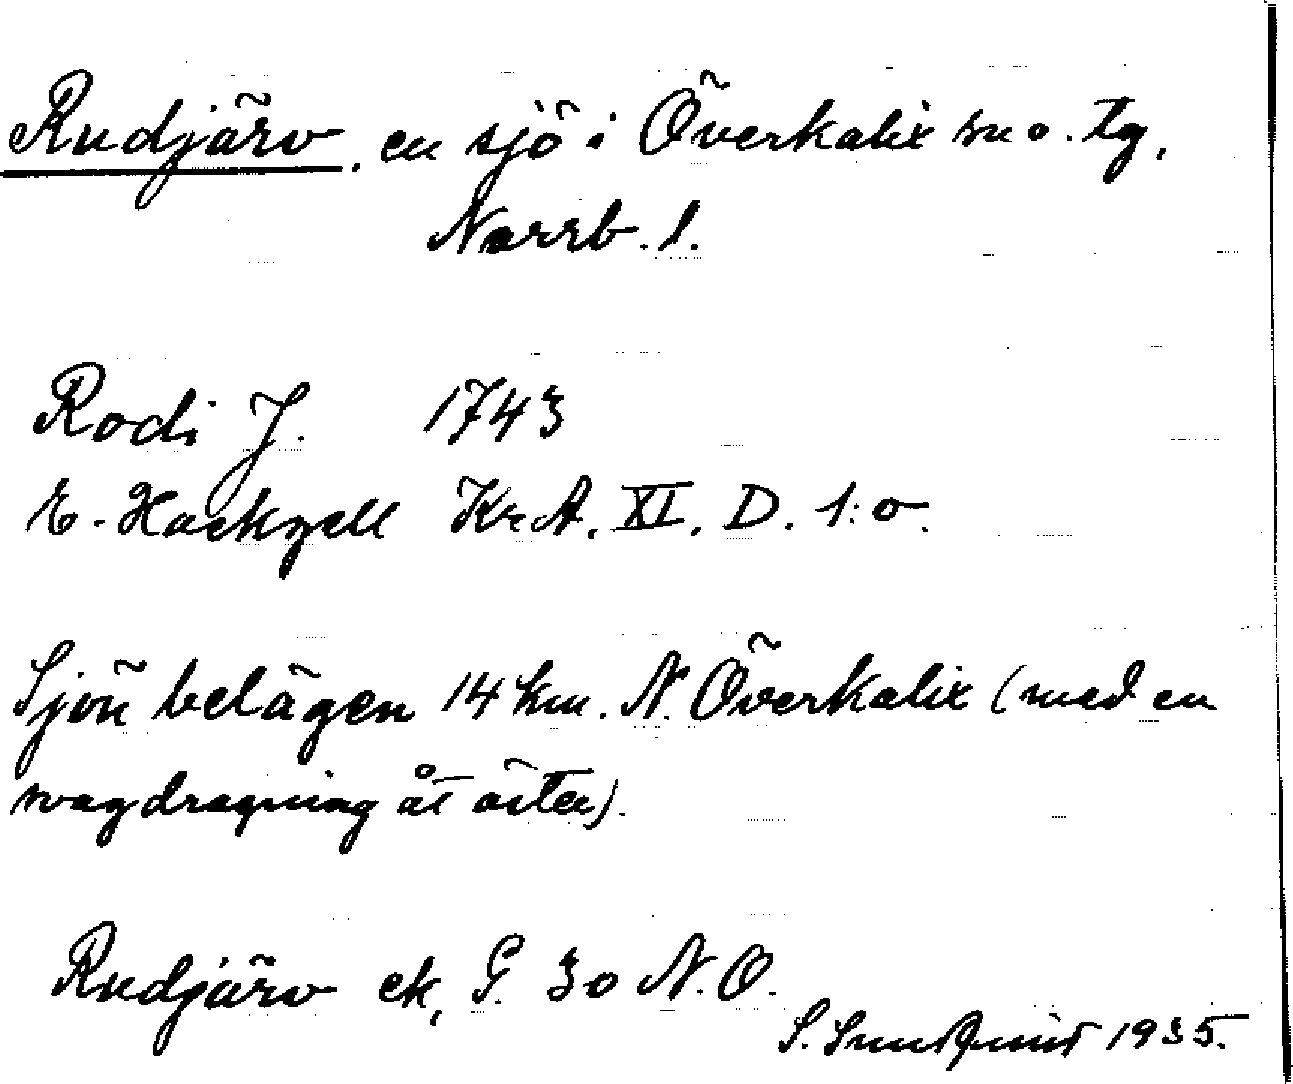 Rudjärv, en sjö i Överkalix sn o. tg,
Norrb. l.
Rodi J. 1743
E. Hackzell KrA. XI. D. 1:o.
Sjön belägen 14 km. N. Överkalix (med en
svag dragning åt öster).
Rudjärv ek, G. 30 N.O.
S. Sundquist 1935.